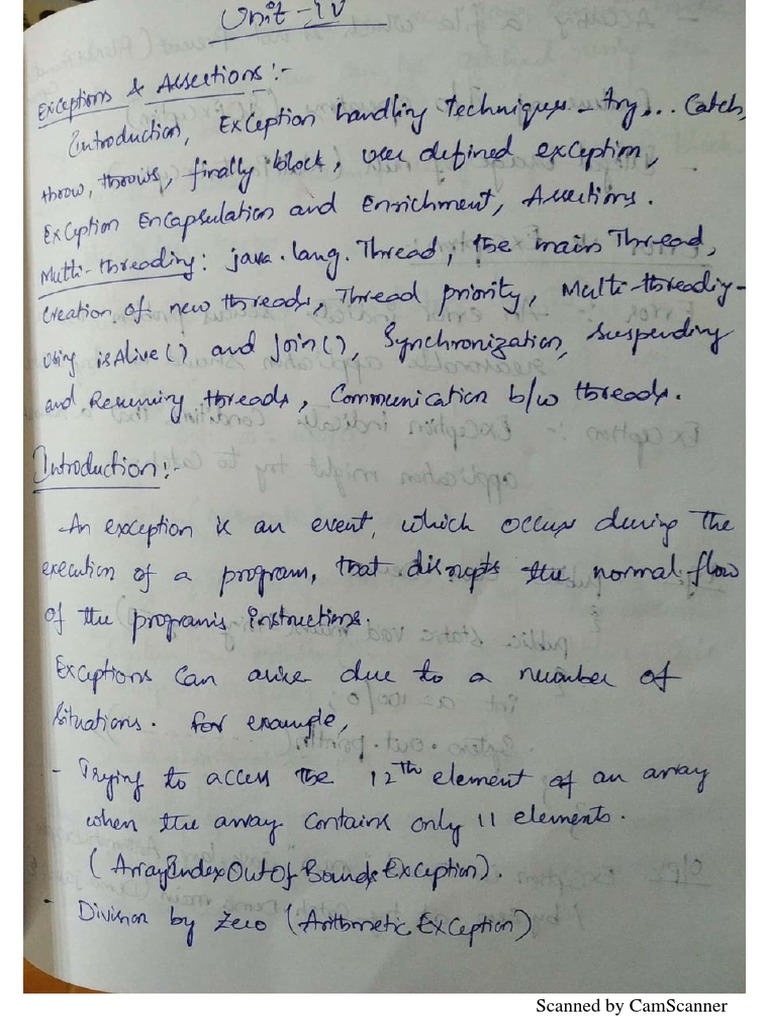 Unit - IV
Exceptions & Assertions :-
Introduction, Exception handling techniques - try... Catch,
throw, throws, finally block, user defined exception,
Exception Encapsulation and Enrichment, Assertions.
Multi-threading : java.lang.Thread, the main Thread,
creation of new threads, Thread priority, Multi-threadig -
using isAlive() and join(), Synchronization, suspending
and Resuming threads, Communication b/w threads.
Introduction :-
- An exception is an event, which occurs during the
execution of a program, that disrupts the normal flow
of the program's instructions.
Exceptions can arise due to a number of
situations. For example,
- Trying to access the 12th element of an array
when the array contains only 11 elements.
(ArrayIndexOutOfBoundsException).
- Division by zero (Arithmetic Exception)
Scanned by CamScanner